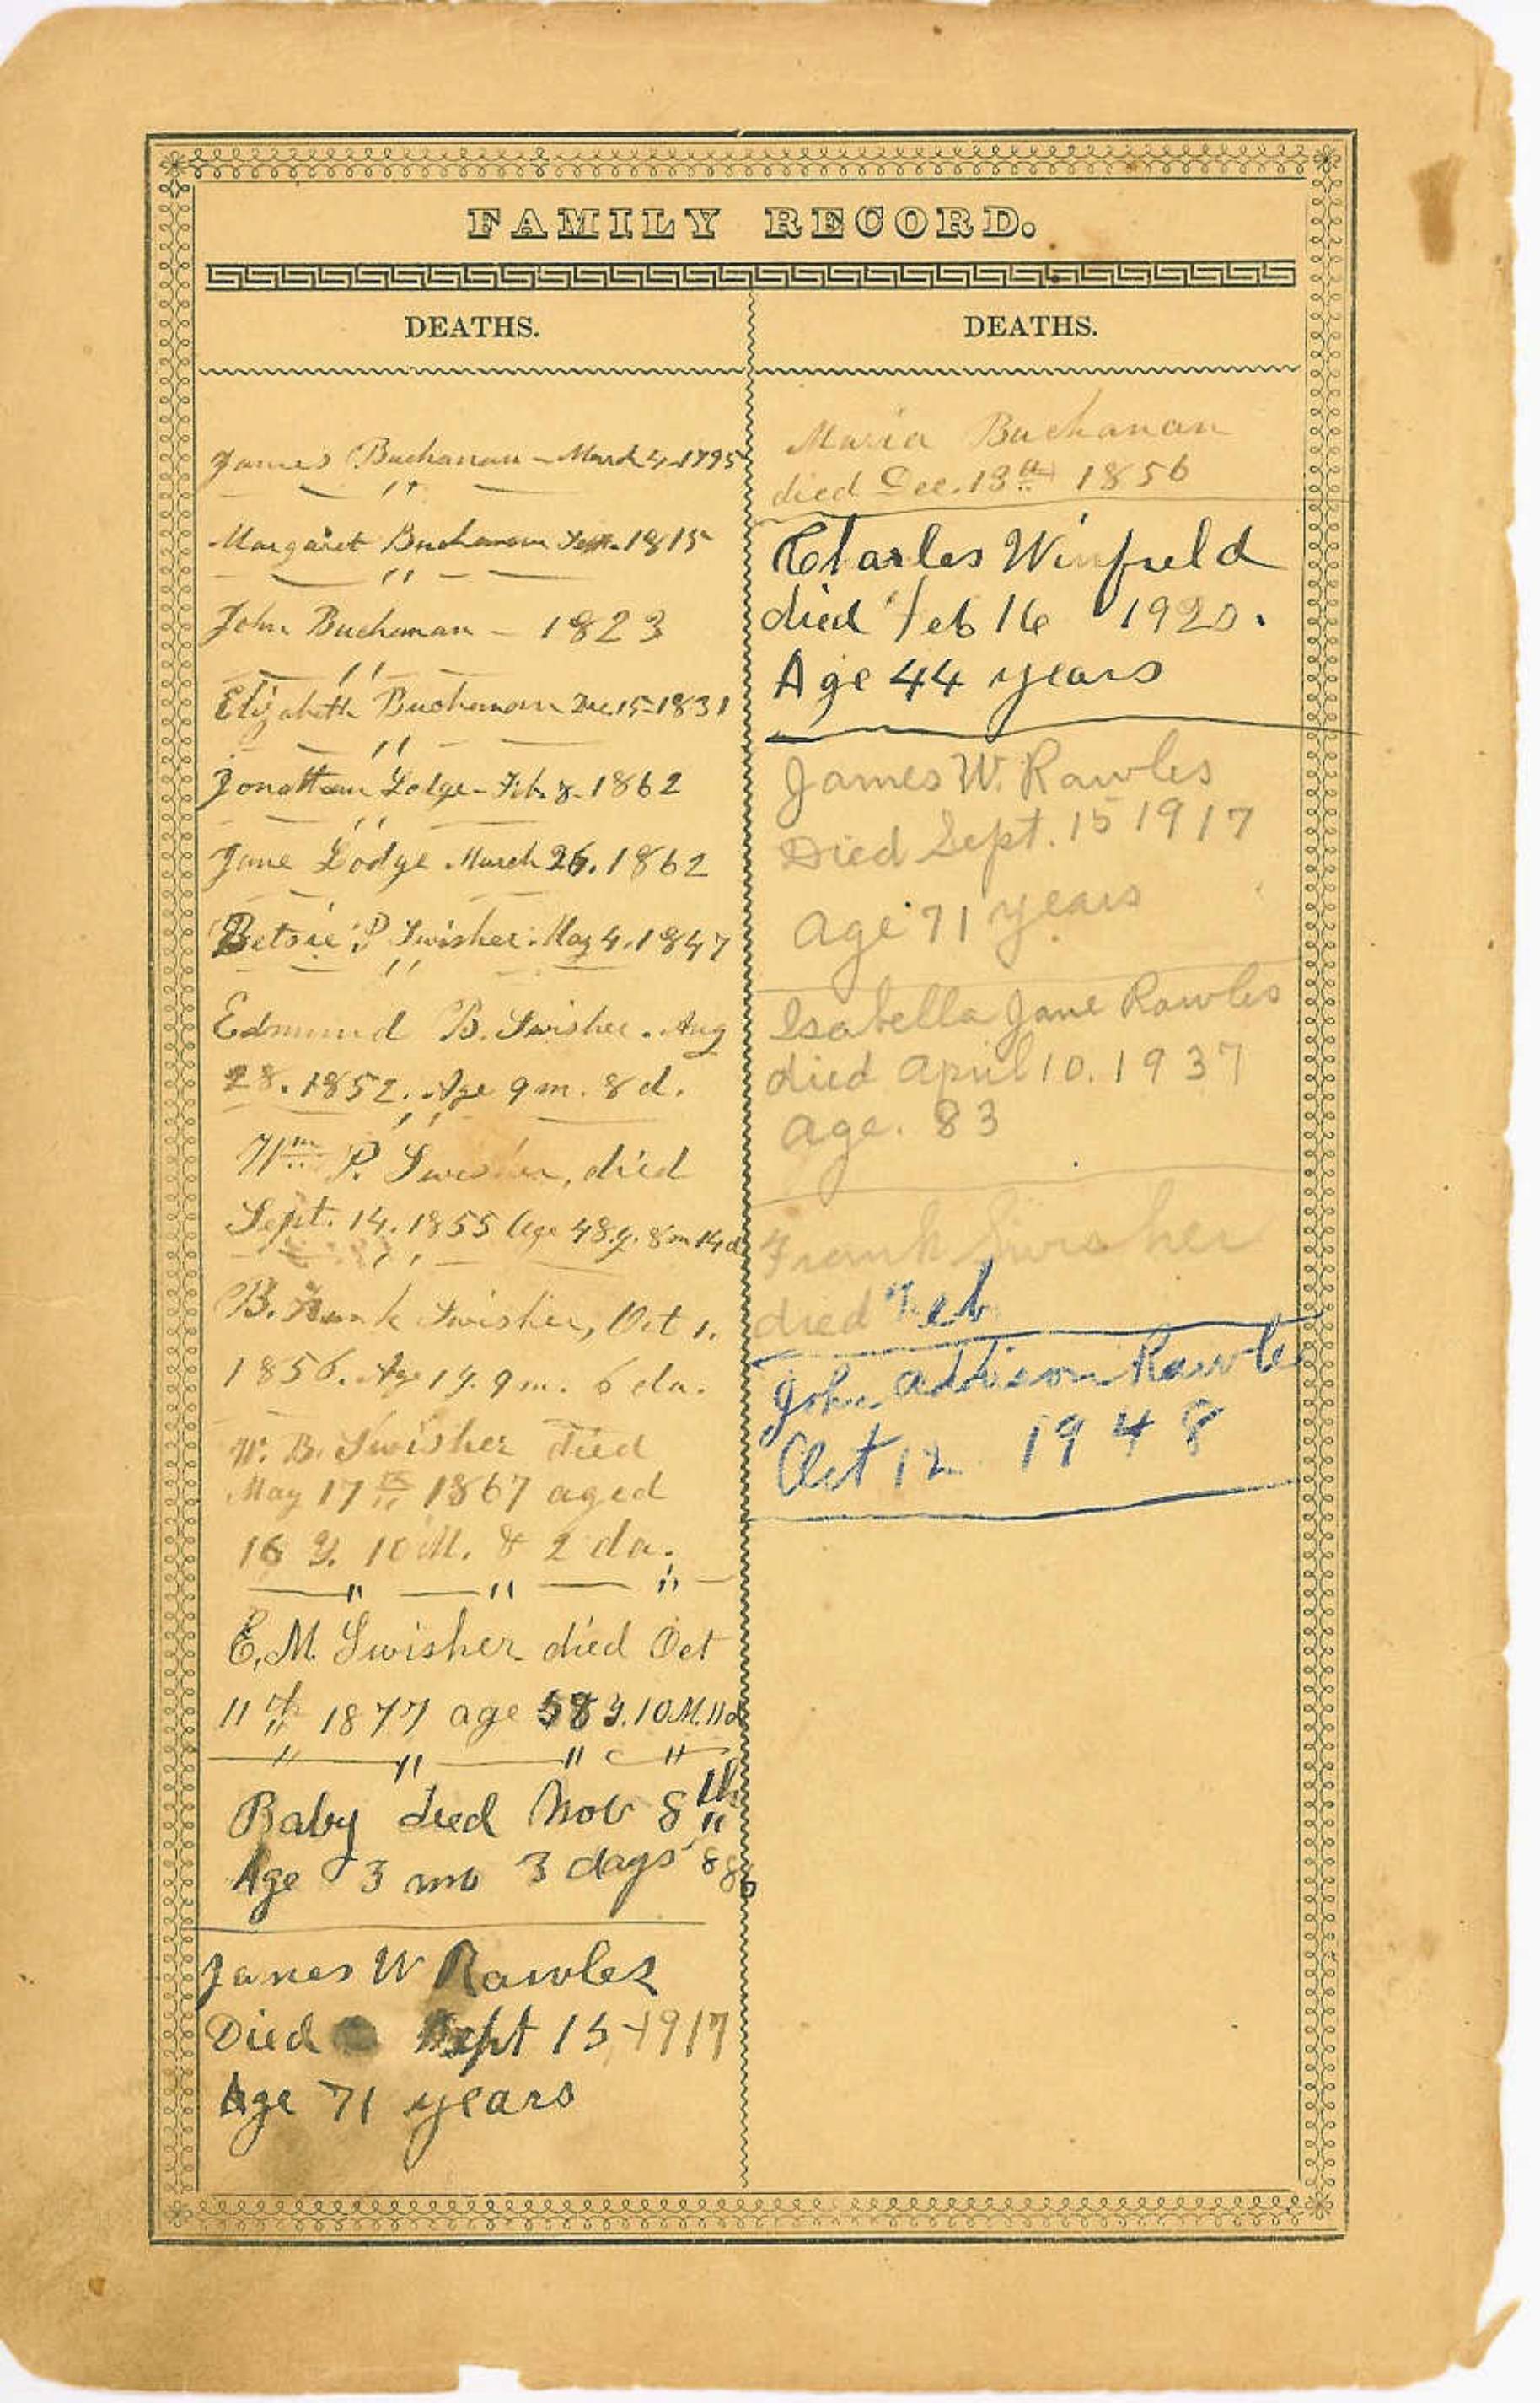 FAMILY RECORD.
DEATHS.
James Buchanan - March 4 - 1795
Margaret Buchanan Sept. 1815
John Buchanan - 1823
Elizabeth Buchanan Dec 15 - 1831
Jonathan Lodge - Feb. 8. 1862
Jane Lodge March 26. 1862
Betsie P Swisher. May 4. 1847
Edmund B. Swisher. Aug
28. 1852. Age 9 m. 8 d.
Wm P. Swisher, died
Sept. 14. 1855 Age 48. y. 8 m 14 d
B. Frank Swisher, Oct 1.
1856. Age 1 y. 9 m. 6 da.
W. B. Swisher Died
May 17th 1867 aged
16 Y. 10 M. & 2 da.
E. M. Swisher died Oct
11th 1877 age 58 y. 10 M. 11 d
Baby died Nov 8th
Age 3 mo 3 days 886
James W Rawles
Died Sept 15 - 1917
Age 71 years
DEATHS.
Maria Buchanan
died Dec. 13th 1856
Charles Winfield
died Feb 16 1920.
Age 44 years
James W. Rawles
Died Sept. 15 1917
age 71 years
Isabella Jane Rawles
died April 10. 1937
age. 83
Frank Swisher
died Feb
John Addison Rawles
Oct 12 1948